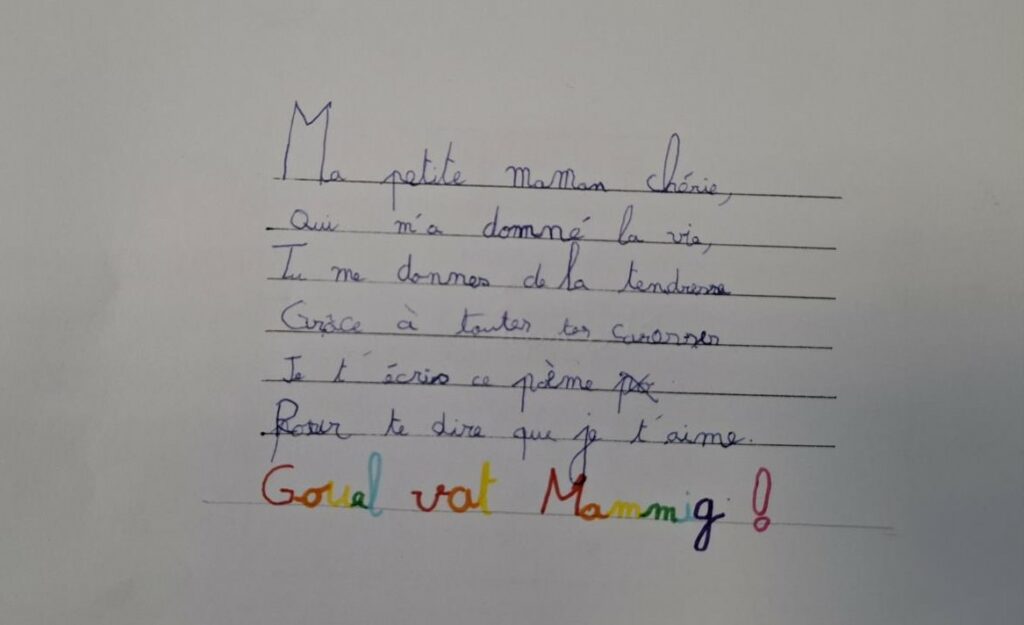 Ma petite maman chérie,
Qui m'a donné la vie,
Tu me donnes de la tendresse
Grâce à toutes tes caresses
Je t'écris ce poème
Pour te dire que je t'aime.
Goual vat Mammig !